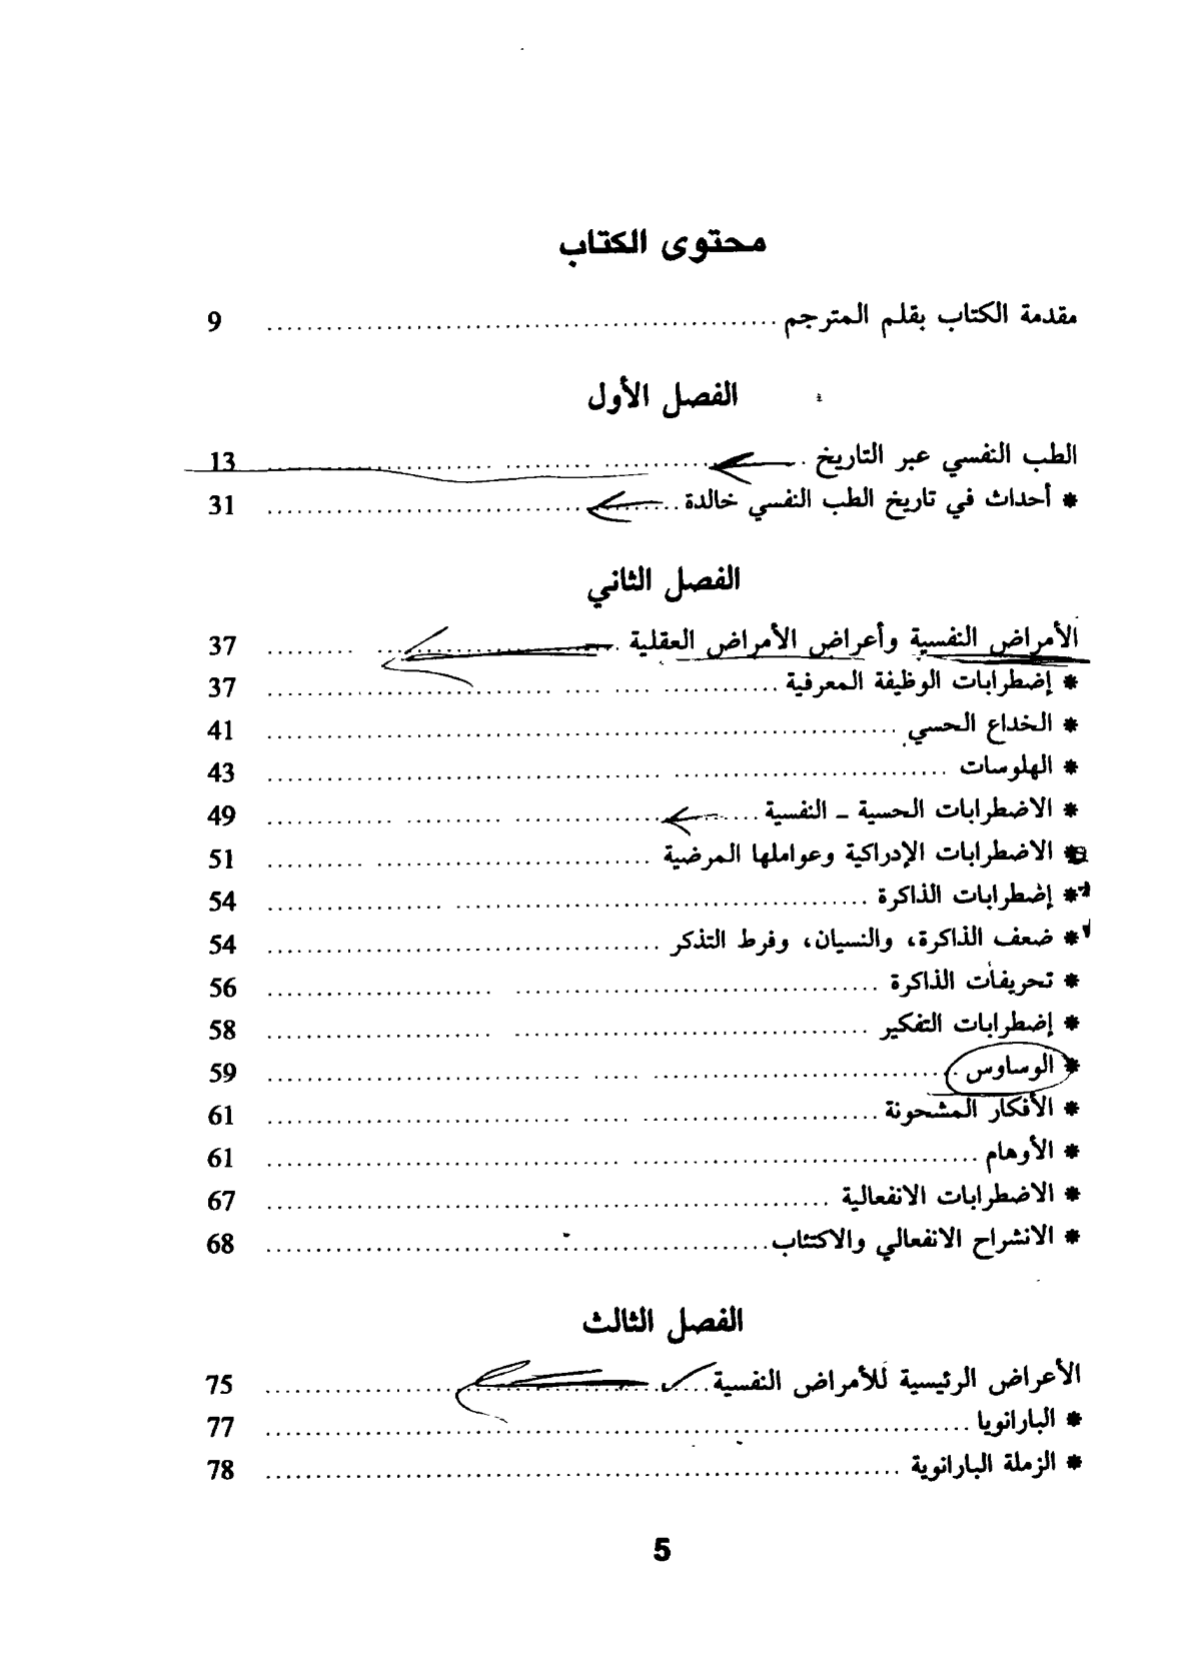 محتوى الكتاب
مقدمة الكتاب بقلم المترجم ........ 9
الفصل الأول
الطب النفسي عبر التاريخ ........ 13
* أحداث في تاريخ الطب النفسي خالدة ........ 31
الفصل الثاني
الأمراض النفسية وأعراض الأمراض العقلية ........ 37
* إضطرابات الوظيفة المعرفية ........ 37
* الخداع الحسي ........ 41
* الهلوسات ........ 43
* الاضطرابات الحسية - النفسية ........ 49
* الاضطرابات الإدراكية وعواملها المرضية ........ 51
* إضطرابات الذاكرة ........ 54
* ضعف الذاكرة، والنسيان، وفرط التذكر ........ 54
* تحريفات الذاكرة ........ 56
* إضطرابات التفكير ........ 58
* الوساوس ........ 59
* الأفكار المشحونة ........ 61
* الأوهام ........ 61
* الاضطرابات الانفعالية ........ 67
* الانشراح الانفعالي والاكتئاب ........ 68
الفصل الثالث
الأعراض الرئيسية للأمراض النفسية ........ 75
* البارانويا ........ 77
* الزملة البارانوية ........ 78
5